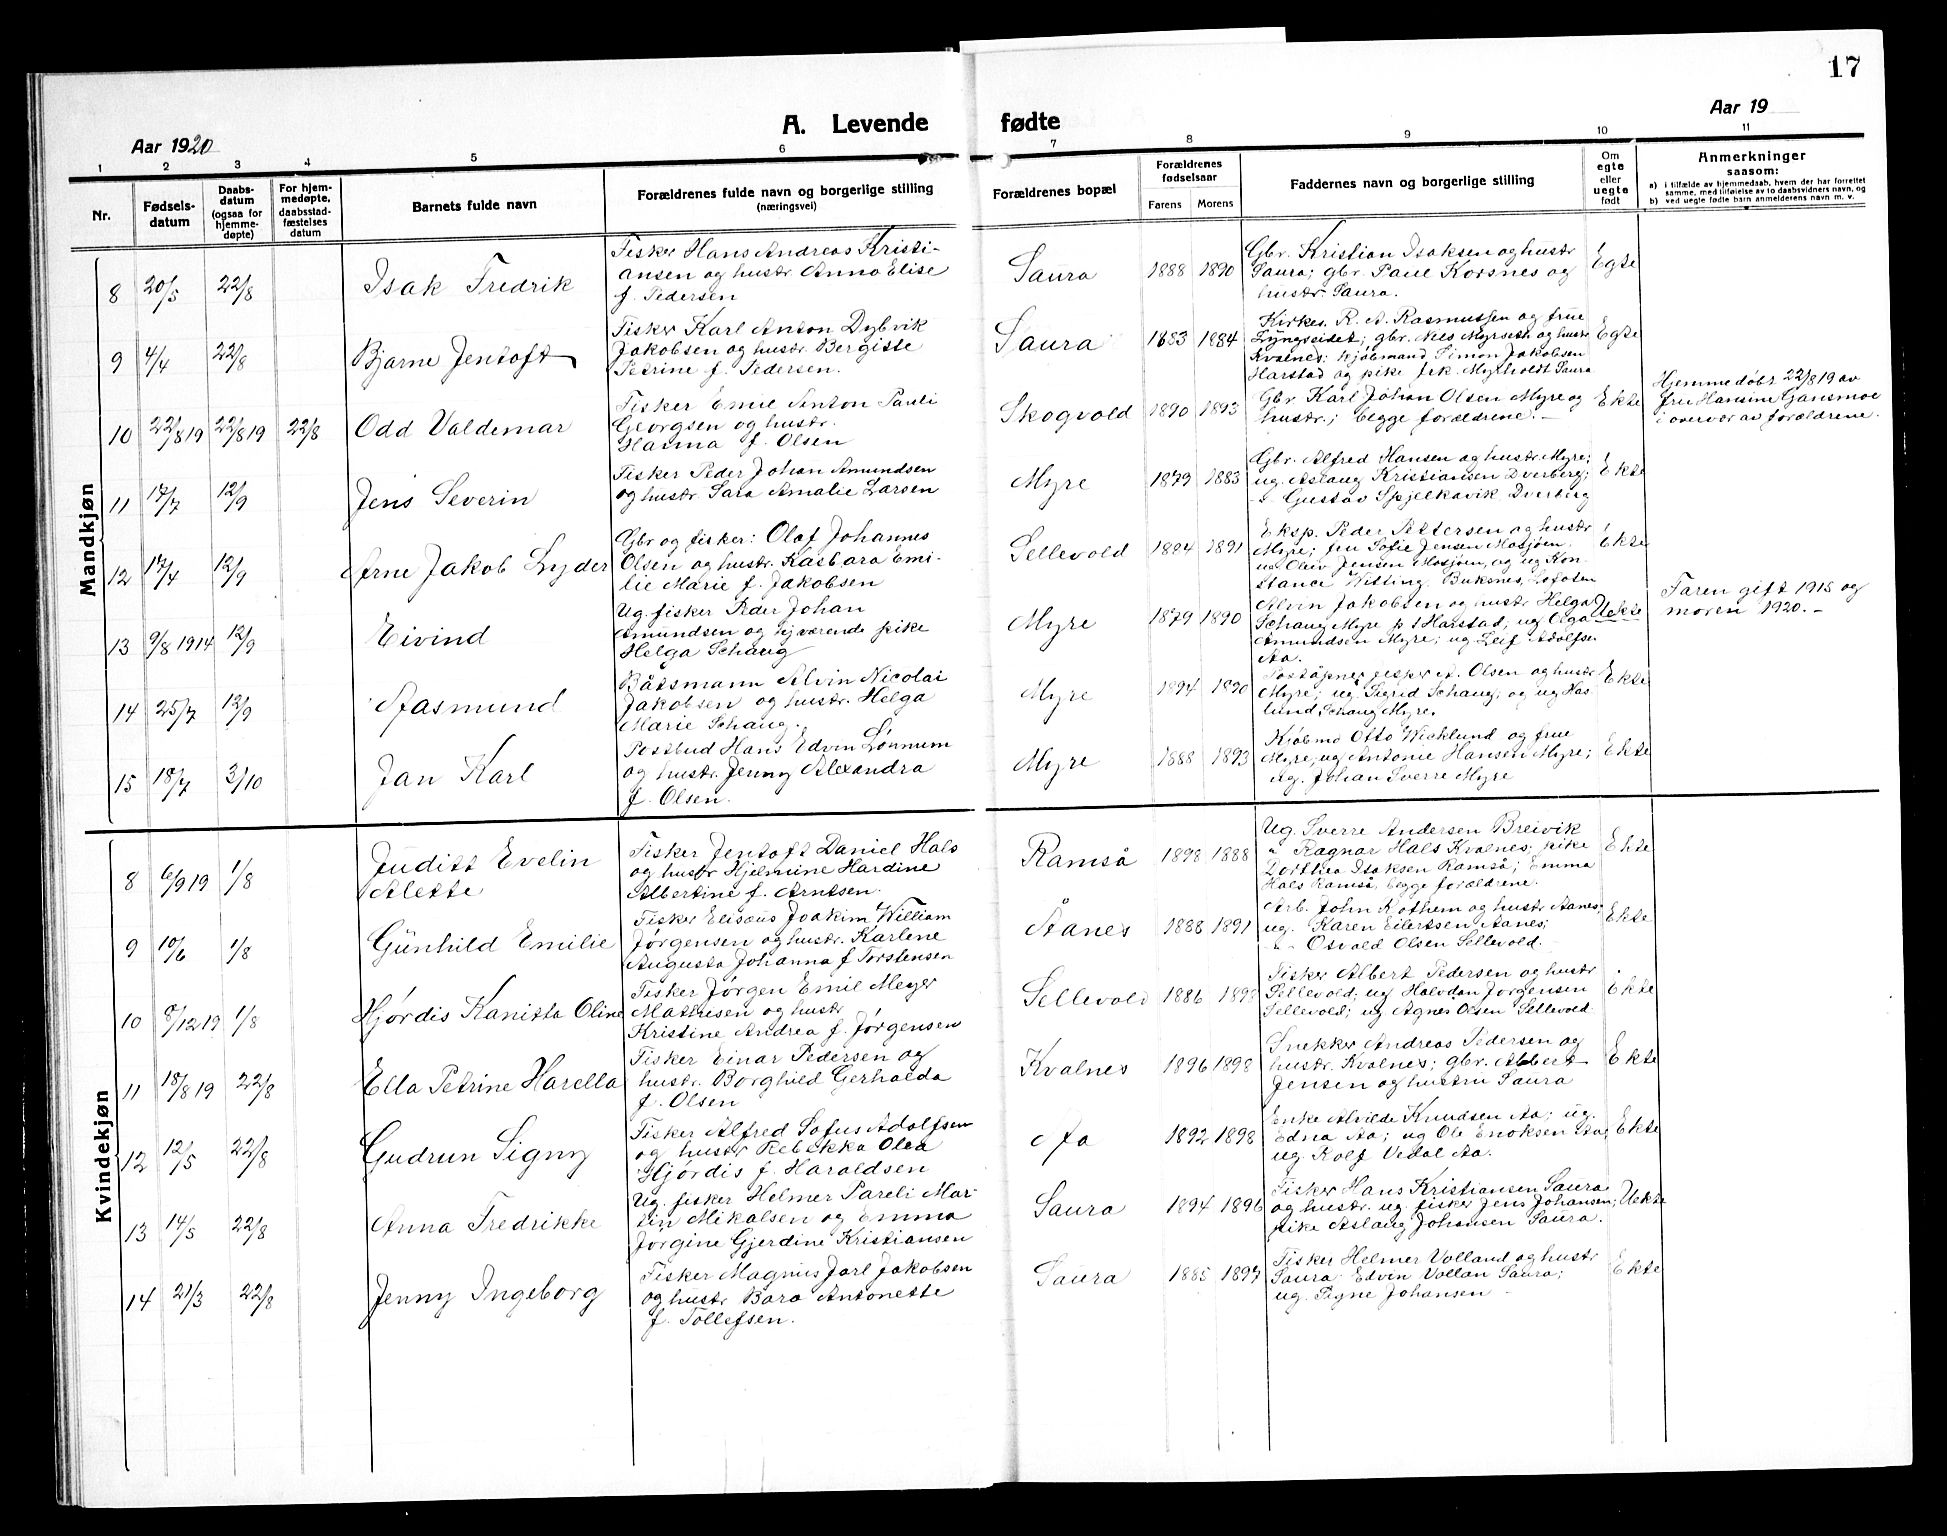 17
Aar 1920
A. Levende
fødte
Aar 19
1 2 3 4 5 6 7 8 9 10 11
Nr.
Fødsels-
datum
Daabs-
datum
(ogsaa for
hjemme-
døpte)
For hjem-
medøpte,
daabsstad-
fæstelses
datum
Barnets fulde navn
Forældrenes fulde navn og borgerlige stilling
(næringsvei)
Forældrenes bopæl
Forældrenes
fødselsaar
Farens Morens
Faddernes navn og borgerlige stilling
Om
egte
eller
uegte
født
Anmerkninger
saasom:
a) i tilfælde av hjemmedaab, hvem der har forrettet
samme, med tilføielse av to daabsvidners navn, og
b) ved uegte fødte barn anmelderens navn m. v.
Mandkjøn
8 20/5 22/8
Isak Fredrik
Fisker Hans Andreas Kristi-
ansen og hustr. Anna Elise
f. Pedersen
Saura 1888 1890
Gbr. Kristian Isaksen og hustr
Saura; gbr. Paul Korsnes og
hustr. Saura.
Egte
9 4/4 22/8
Bjarne Jentoft
Fisker Karl Anton Dybvik
Jakobsen og hustr. Bergitte
Petrine f. Pedersen.
Saura 1883 1884
Kirkes. R. A. Rasmussen og frue
Lyngseidet; gbr. Nils Myrseth og hustr
Kvalnes; kjøbmand Simon Jakobsen
Harstad og pike frk. Myrholdt Saura
Egte
10 22/8 19 22/8 19 22/8
Odd Valdemar
Fisker Emil Anton Pauli
Georgsen og hustr.
Hanna f. Olsen
Skogvold 1890 1893
Gbr. Karl Johan Olsen Myre og
hustr.; begge forældrene. -
Ekte
Hjemmedøbt 22/8 19 av
fru Hansine Gansmoe
i overvær av forældrene.
11 17/7 12/9
Jens Severin
Fisker Peder Johan Amundsen
og hustr. Sara Amalie Larsen
Myre 1879 1883
Gbr. Alfred Hansen og hustr. Myre;
ug. Aslaug Kristiansen Dverberg;
" Gustav Spjelkavik Dverberg
Ekte
12 17/4 12/9
Arne Jakob Lyder
Gbr og fisker: Olaf Johannes
Olsen og hustr. Kasbara Emi-
lie Marie f. Jakobsen
Sellevold 1884 1891
Eksp. Peder Pettersen og hustr
Myre; fru Sofie Jensen Mosjøen.
ug Oleiv Jensen Mosjøen, og ug Kon-
stance Witting. Buksnes, Lofoten
Ekte
13 9/8 1914 12/9
Eivind
Ug. fisker Peder Johan
Amundsen og hjværende pike
Helga Schaug
Myre 1879 1890
Alvin Jakobsen og hustr Helga
Schaug Myre p t Harstad; ug Olga
Amundsen Myre; ug Leif Adolfsen
Aa.
Uekte
Faren gift 1915 og
moren 1920. -
14 25/7 12/9
Aasmund
Båtsmann Alvin Nicolai
Jakobsen og hustr. Helga
Marie Schaug.
Myre 1894 1890
Poståpner Jesper A. Olsen og hustr
Myre; ug Sigrid Schaug; og ug Has-
lund Schaug Myre.
Ekte
15 18/7 3/10
Jan Karl
Postbud Hans Edvin Lønnum
og hustr. Jenny Alexandra
f. Olsen.
Myre 1888 1893
Kjøbmd Otto Wicklund og frue
Myre, ug Antonie Hansen Myre;
ug. Johan Sverre Myre
Ekte
Kvindekjøn
8 6/9 19 1/8
Juditt Evelin
Alette
Fisker Jentoft Daniel Hals
og hustr Hjelmine Hardine
Albertine f. Arntsen.
Ramså 1898 1888
Ug. Sverre Andersen Breivik
" Ragnar Hals Kvalnes; pike
Dorthea Isaksen Ramså; Emma
Hals Ramså, begge forældrene.
Ekte
9 10/6 1/8
Gunhild Emilie
Fisker Elisæus Joakim William
Jørgensen og hustr. Karlene
Augusta Johanna f Torstensen
Åanes 1888 1891
Arb. John Kothem og hustr Aanes;
ug. Karen Eilertsen Aanes;
" Osvald Olsen Sellevold.
Ekte
10 8/12 19 1/8
Hjørdis Kanitta Oline
Fisker Jørgen Emil Meyer
Mathisen og hustr
Kristine Andrea f. Jørgensen
Sellevold 1886 1898
Fisker Albert Pedersen og hustr
Sellevold; ug Halvdan Jørgensen
Sellevold; ug Agnes Olsen Sellevold
Ekte
11 18/8 19 22/8
Ella Petrine Harella
Fisker Einar Pedersen og
hustr. Borghild Gerhalda
f. Olsen
Kvalnes 1896 1898
Snekker Andreas Pedersen og
hustr. Kvalnes; gbr. Albert
Jensen og hustru Saura
Ekte
12 12/5 22/8
Gudrun Signy
Fisker Alfred Sofus Adolfsen
og hustr Rebekka Olea
Hjørdis f. Haraldsen
Aa 1892 1898
Enke Alvilde Knudsen Aa; ug.
Edna Aa; ug Ole Enoksen Aa;
ug. Rolf Vedal Aa.
Ekte
13 14/5 22/8
Anna Fredrikke
Ug. fisker Helmer Pareli Mar-
tin Mikalsen og Emma
Jørgine Gjerdine Kristiansen
Saura 1894 1896
Fisker Hans Kristiansen Saura
og hustr. ug. fisker Jens Johansen;
pike Aslaug Johansen Saura.
Uekte
14 21/3 22/8
Jenny Ingeborg
Fisker Magnus Jarl Jakobsen
og hustr Bara Antonette
f. Tollefsen.
Saura 1885 1897
Fisker Helmer Volland og hustr
Saura Edvin Vollan Saura;
ug. Signe Johansen -
Ekte